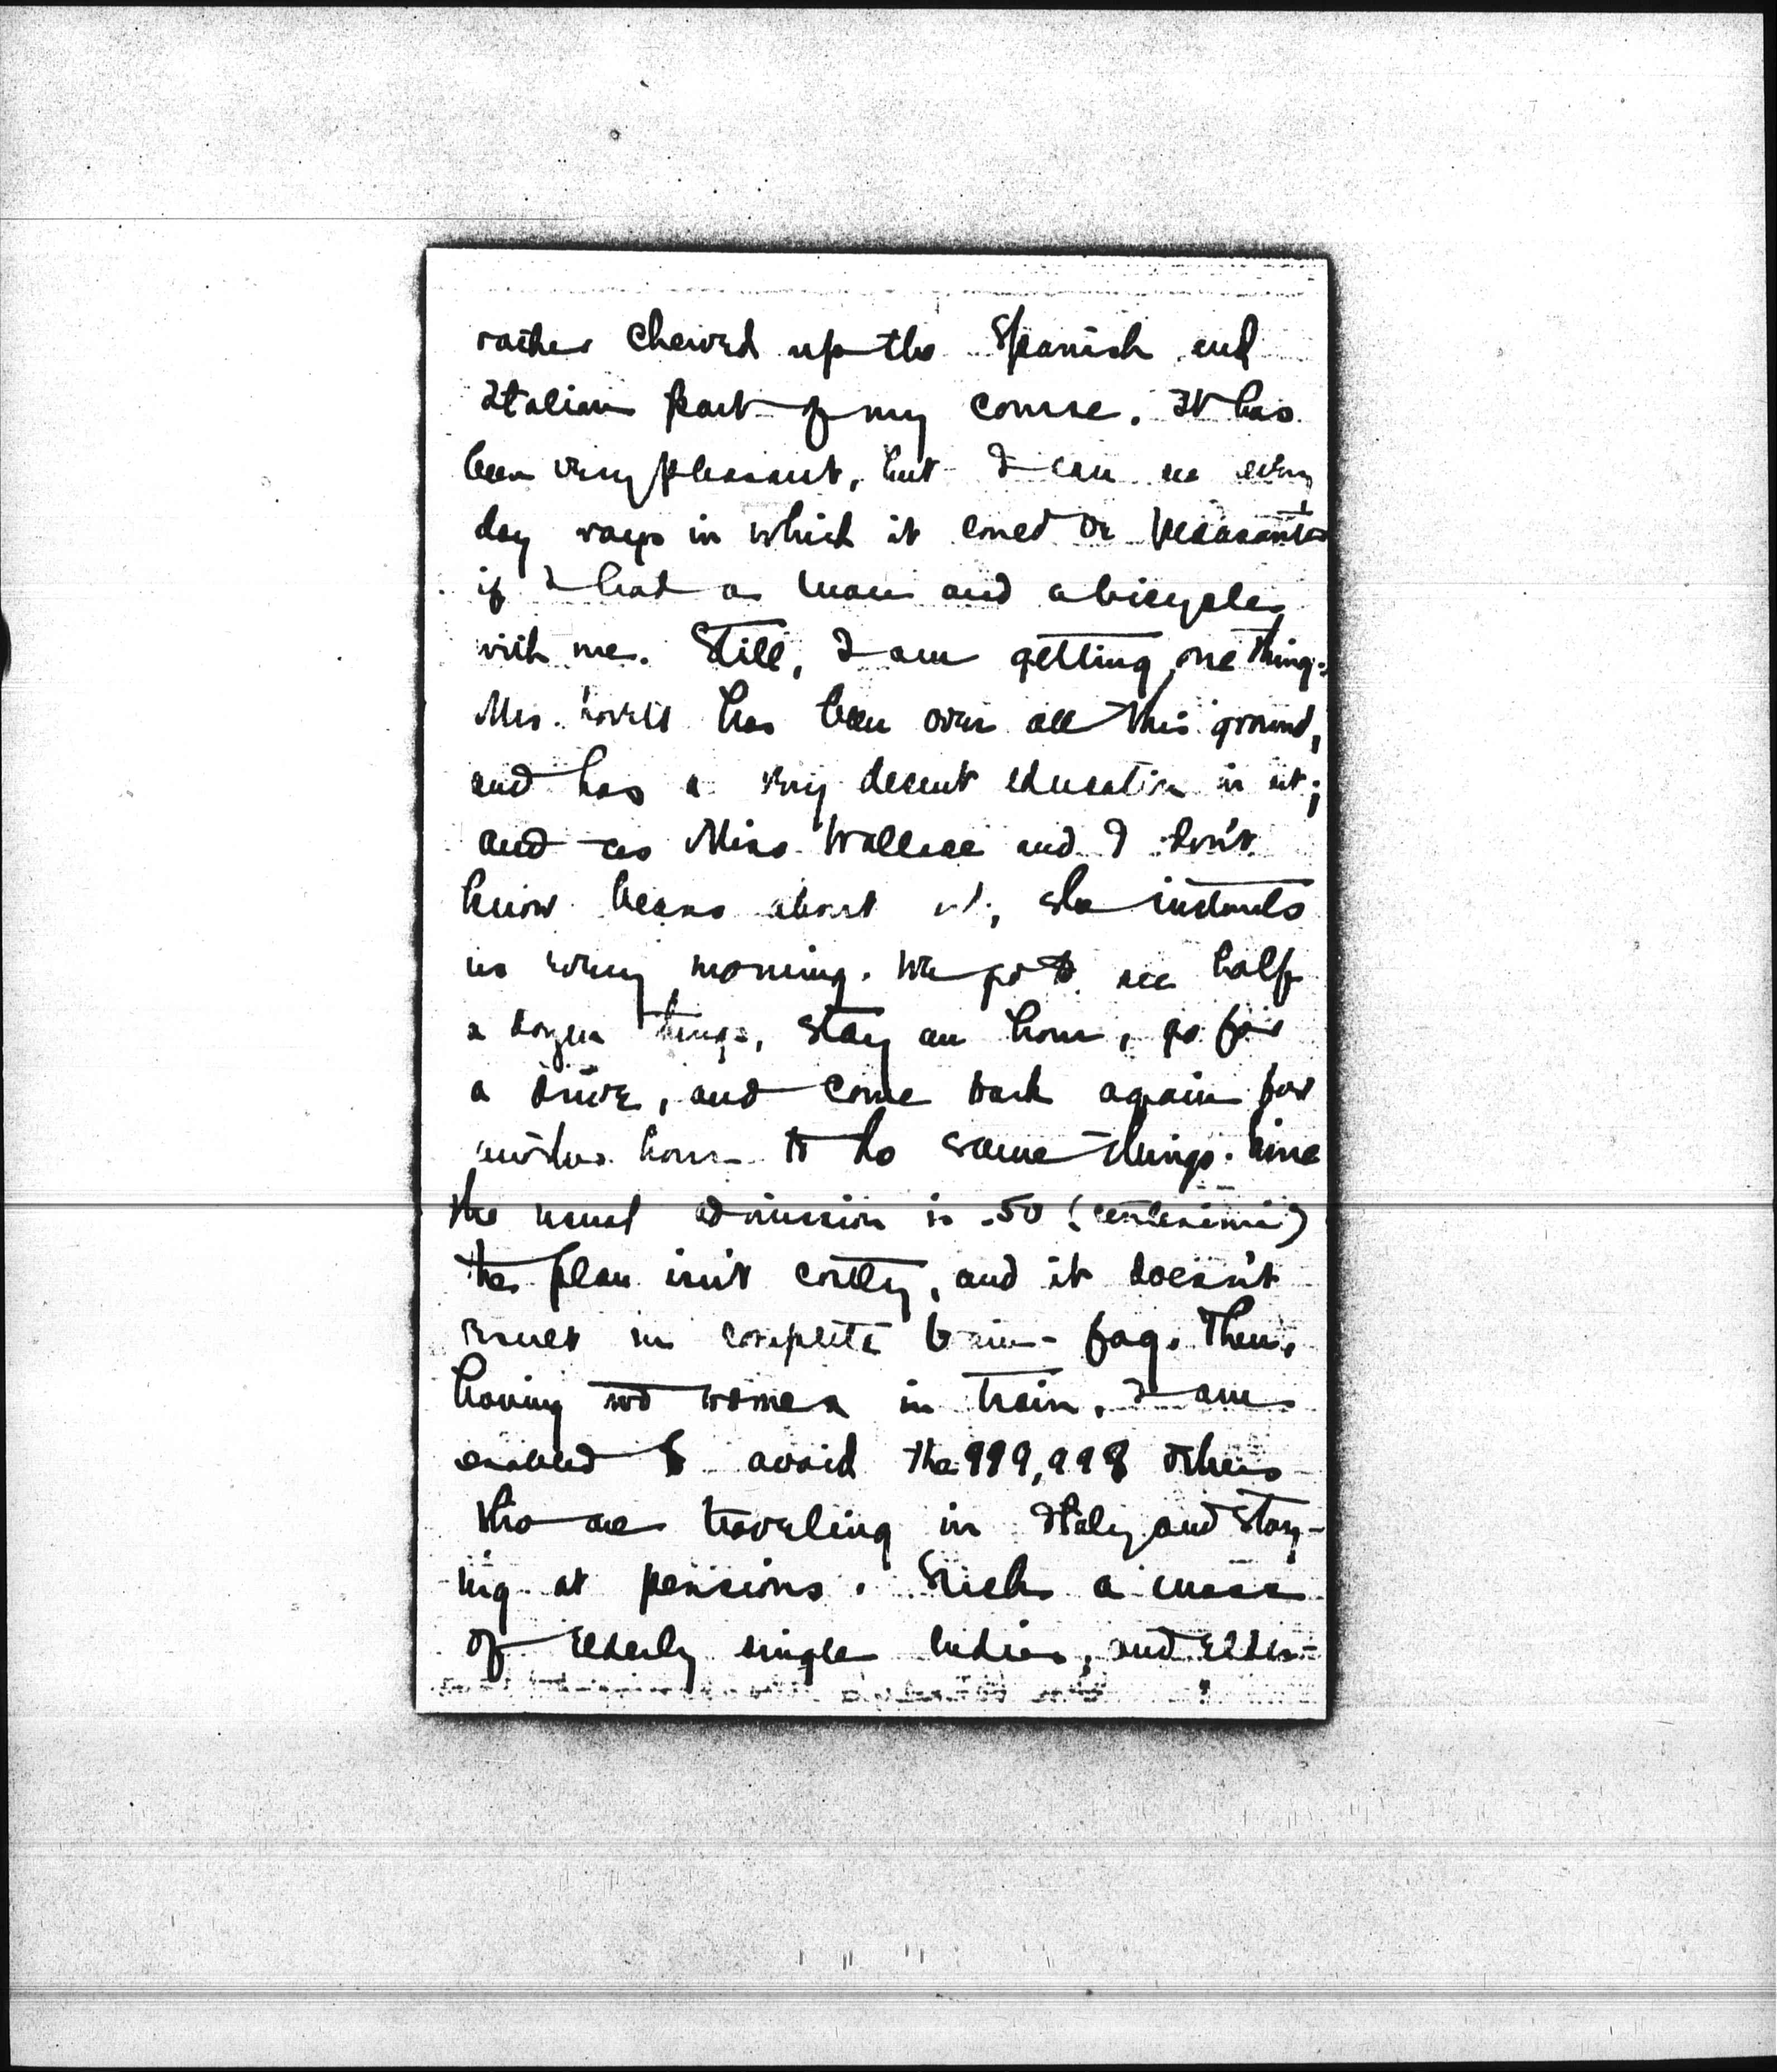 rather chewed up the Spanish and
Italian part of my course. It has
been very pleasant, but I can see every
day ways in which it could be pleasanter
if I had a man and a bicycle
with me. Still, I am getting one thing.
Mrs. Lovett has been over all this ground,
and has a very decent education in it;
and as Miss Wallace and I don't
know beans about it, she instructs
us every morning. We go to see half
a dozen things, stay an hour, go for
a drive, and come back again for
another hour to do same things. Since
the usual admission is .50 (centesimi)
the plan isn't costly, and it doesn't
result in complete brain-fag. Then,
having two women in train, I am
enabled to avoid the 999,998 others
who are traveling in Italy and stay-
ing at pensions. Such a mass
of elderly single ladies, and elder-